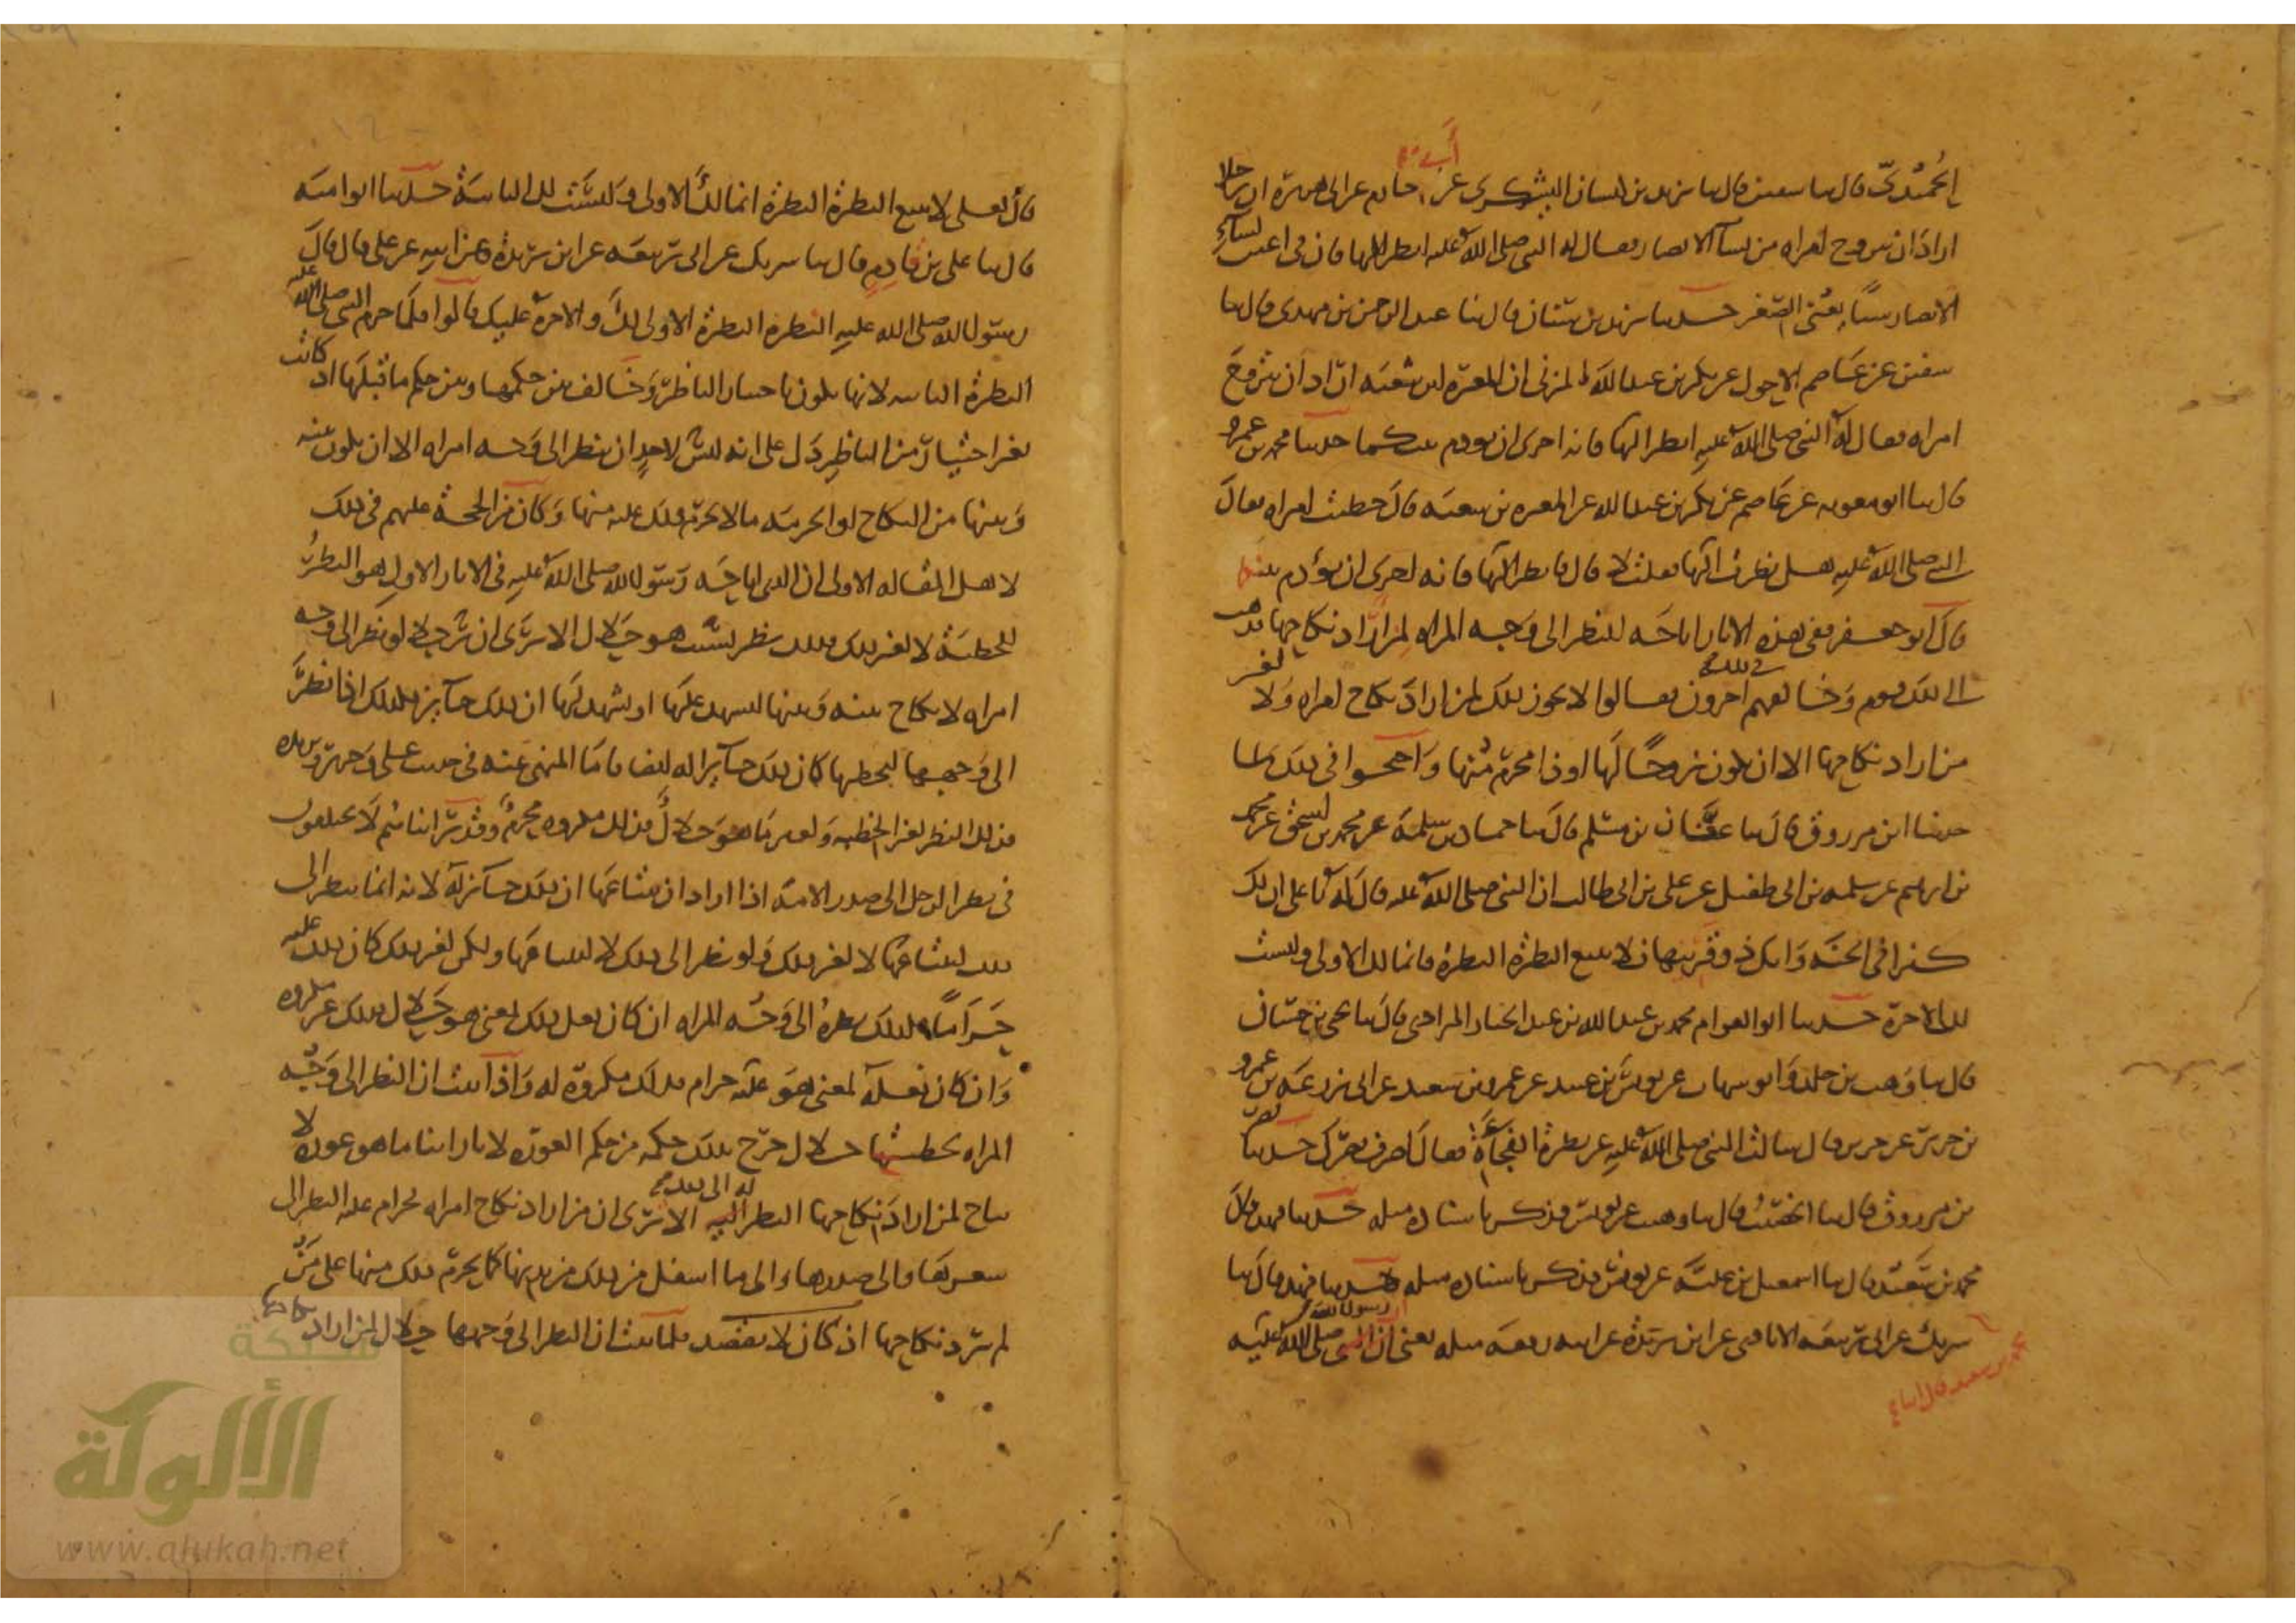 الحُمَيْدىّ قال ثنا سفين قال ثنا يزيد بن كيسان اليشكرى عن أبى حازم عن ابى هريرة ان رجلا
اراد ان يتزوج امراه من نسآ الانصار فقال له النبى صلى الله عليه انظر اليها فان فى اعين نسآء
الانصار شيئًا يعنى الصّغر حدثنا يزيد بن سنان قال ثنا عبد الرحمن بن مهدى قال ثنا
سفين عن عاصم الاحول عن بكر بن عبد الله المزنى ان المغيرة بن شعبه اراد ان يتزوج
امراه فقال له النبى صلى الله عليه انظر اليها فانه احرى ان يودم بينكما حدثنا محمد بن عمرو
قال ثنا ابو معويه عن عاصم عن بكر بن عبد الله عن المغيره بن شعبه قال خطبت امراه فقال
لى النبى صلى الله عليه هل نظرت اليها فقلت لا قال فانظر اليها فانه احرى ان يؤدم بينكما
قال ابو جعفر ففى هذه الاثار اباحه للنظر الى وجه المراه لمن اراد نكاحها فذهب
الى ذلك قوم وخالفهم فى ذلك اخرون فقالوا لا يجوز ذلك لمن اراد نكاح امراه ولا لغير
من اراد نكاحها الا ان يكون زوجًا لها او ذا محرم منها واحتجوا فى ذلك بما
حدثنا ابن مرزوق قال ثنا عفان بن مسلم قال ثنا حماد بن سلمة عن محمد بن اسحق عن محمد
بن ابرهيم عن سلمه بن ابى طفيل عن على بن ابى طالب ان النبى صلى الله عليه قال له يا على ان لك
كنزا فى الجنه وانك ذو قرنيها فلا تتبع النظرة النظرة فانما لك الاولى وليست
لك الاخرة حدثنا ابو العوام محمد بن عبد الله بن عبد الجبار المرادى قال ثنا يحيى بن حسان
قال ثنا وهيب بن خلد وابو شهاب عن يونس بن عبيد عن عمرو بن سعيد عن ابى زرعه بن عمرو
بن جرير عن جرير قال سالت النبى صلى الله عليه عن نظرة الفجآة فقال اصرف بصرك حدثنا نصر
بن مرزوق قال ثنا الخصيب قال ثنا وهيب عن يونس فذكر باسناده مثله حدثنا فهد قال ثنا
محمد بن سعيد قال ثنا اسمعيل بن علية عن يونس فذكر باسناده مثله حدثنا فهد قال ثنا
محمد بن سعيد قال ثنا
شريك عن ابى ربيعه الايادى عن ابن بريدة عن ابيه رفعه مثله يعنى ان رسول الله صلى الله عليه
قال لعلى لا تتبع النظرة النظرة انما لك الاولى وليست لك الثانية حدثنا ابو اميه
قال ثنا على بن قادم قال ثنا شريك عن ابى ربيعه عن ابن بريدة عن ابيه عن على قال قال
رسول الله صلى الله عليه النظرة النظرة الاولى لك والاخرة عليك قالوا فلما حرم النبى صلى الله عليه
النظرة الثانيه لانها تكون باختيار الناظر وخالف بين حكمها وبين حكم ما قبلها اذ كانت
بغير اختيار من الناظر دل على انه ليس لاحد ان ينظر الى وجه امراه الا ان يكون بينه
وبينها من النكاح او الحرمه ما لا يحرم ذلك عليه منها وكان من الحجة عليهم فى ذلك
لاهل المقاله الاولى ان الذى اباحه رسول الله صلى الله عليه فى الاثار الاول هو النظر
للخطبة لا لغير ذلك فذلك نظر بسبب هو حلال الا ترى ان رجلا لو نظر الى وجه
امراه لا نكاح بينه وبينها ليشهد عليها او ليشهد لها ان ذلك جائز فكذلك اذا نظر
الى وجهها ليخطبها كان ذلك جائزا له ايضا فاما المنهى عنه فى حديث على وجرير وبريده
فذلك النظر لغير الخطبه ولغير ما هو حلال فذلك مكروه محرم وقد راينا‌هم لا يختلفون
فى نظر الرجل الى صدر الامة اذا اراد ان يبتاعها ان ذلك جائز له لانه انما ينظر الى
ذلك ليبتاعها لا لغير ذلك ولو نظر الى ذلك لا ليبتاعها ولكن لغير ذلك كان ذلك عليه
حَرَاماً فكذلك نظره الى وجه المراه ان كان فعل ذلك لمعنى هو حلال فذلك غير مكروه
وان كان فعله لمعنى هو عليه حرام فذلك مكروه له واذا ثبت ان النظر الى وجه
المراه لخطبتها حلال خرج بذلك حكمه من حكم العورة ولانا راينا ما هو عورة لا
يباح لمن اراد نكاحها النظر اليه الا ترى ان من اراد نكاح امراه فحرام عليه النظر الى
شعرها والى صدرها والى ما اسفل من ذلك من بدنها كما يحرم ذلك منها على من
لم يرد نكاحها فلما ثبت ان النظر الى وجهها حلال لمن اراد نكاحها
شبكة
الألوكة
www.alukah.net